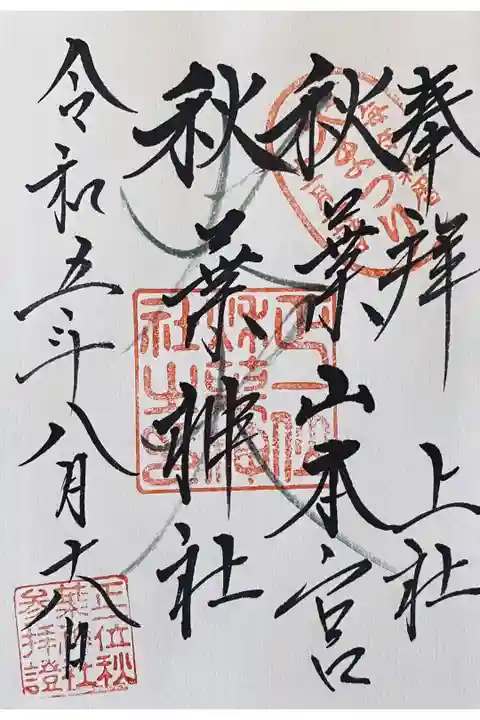 奉拝 上社
秋葉山本宮
秋葉神社
令和五年八月十八日
正一位秋葉神社之印
正一位秋葉神社参拝證